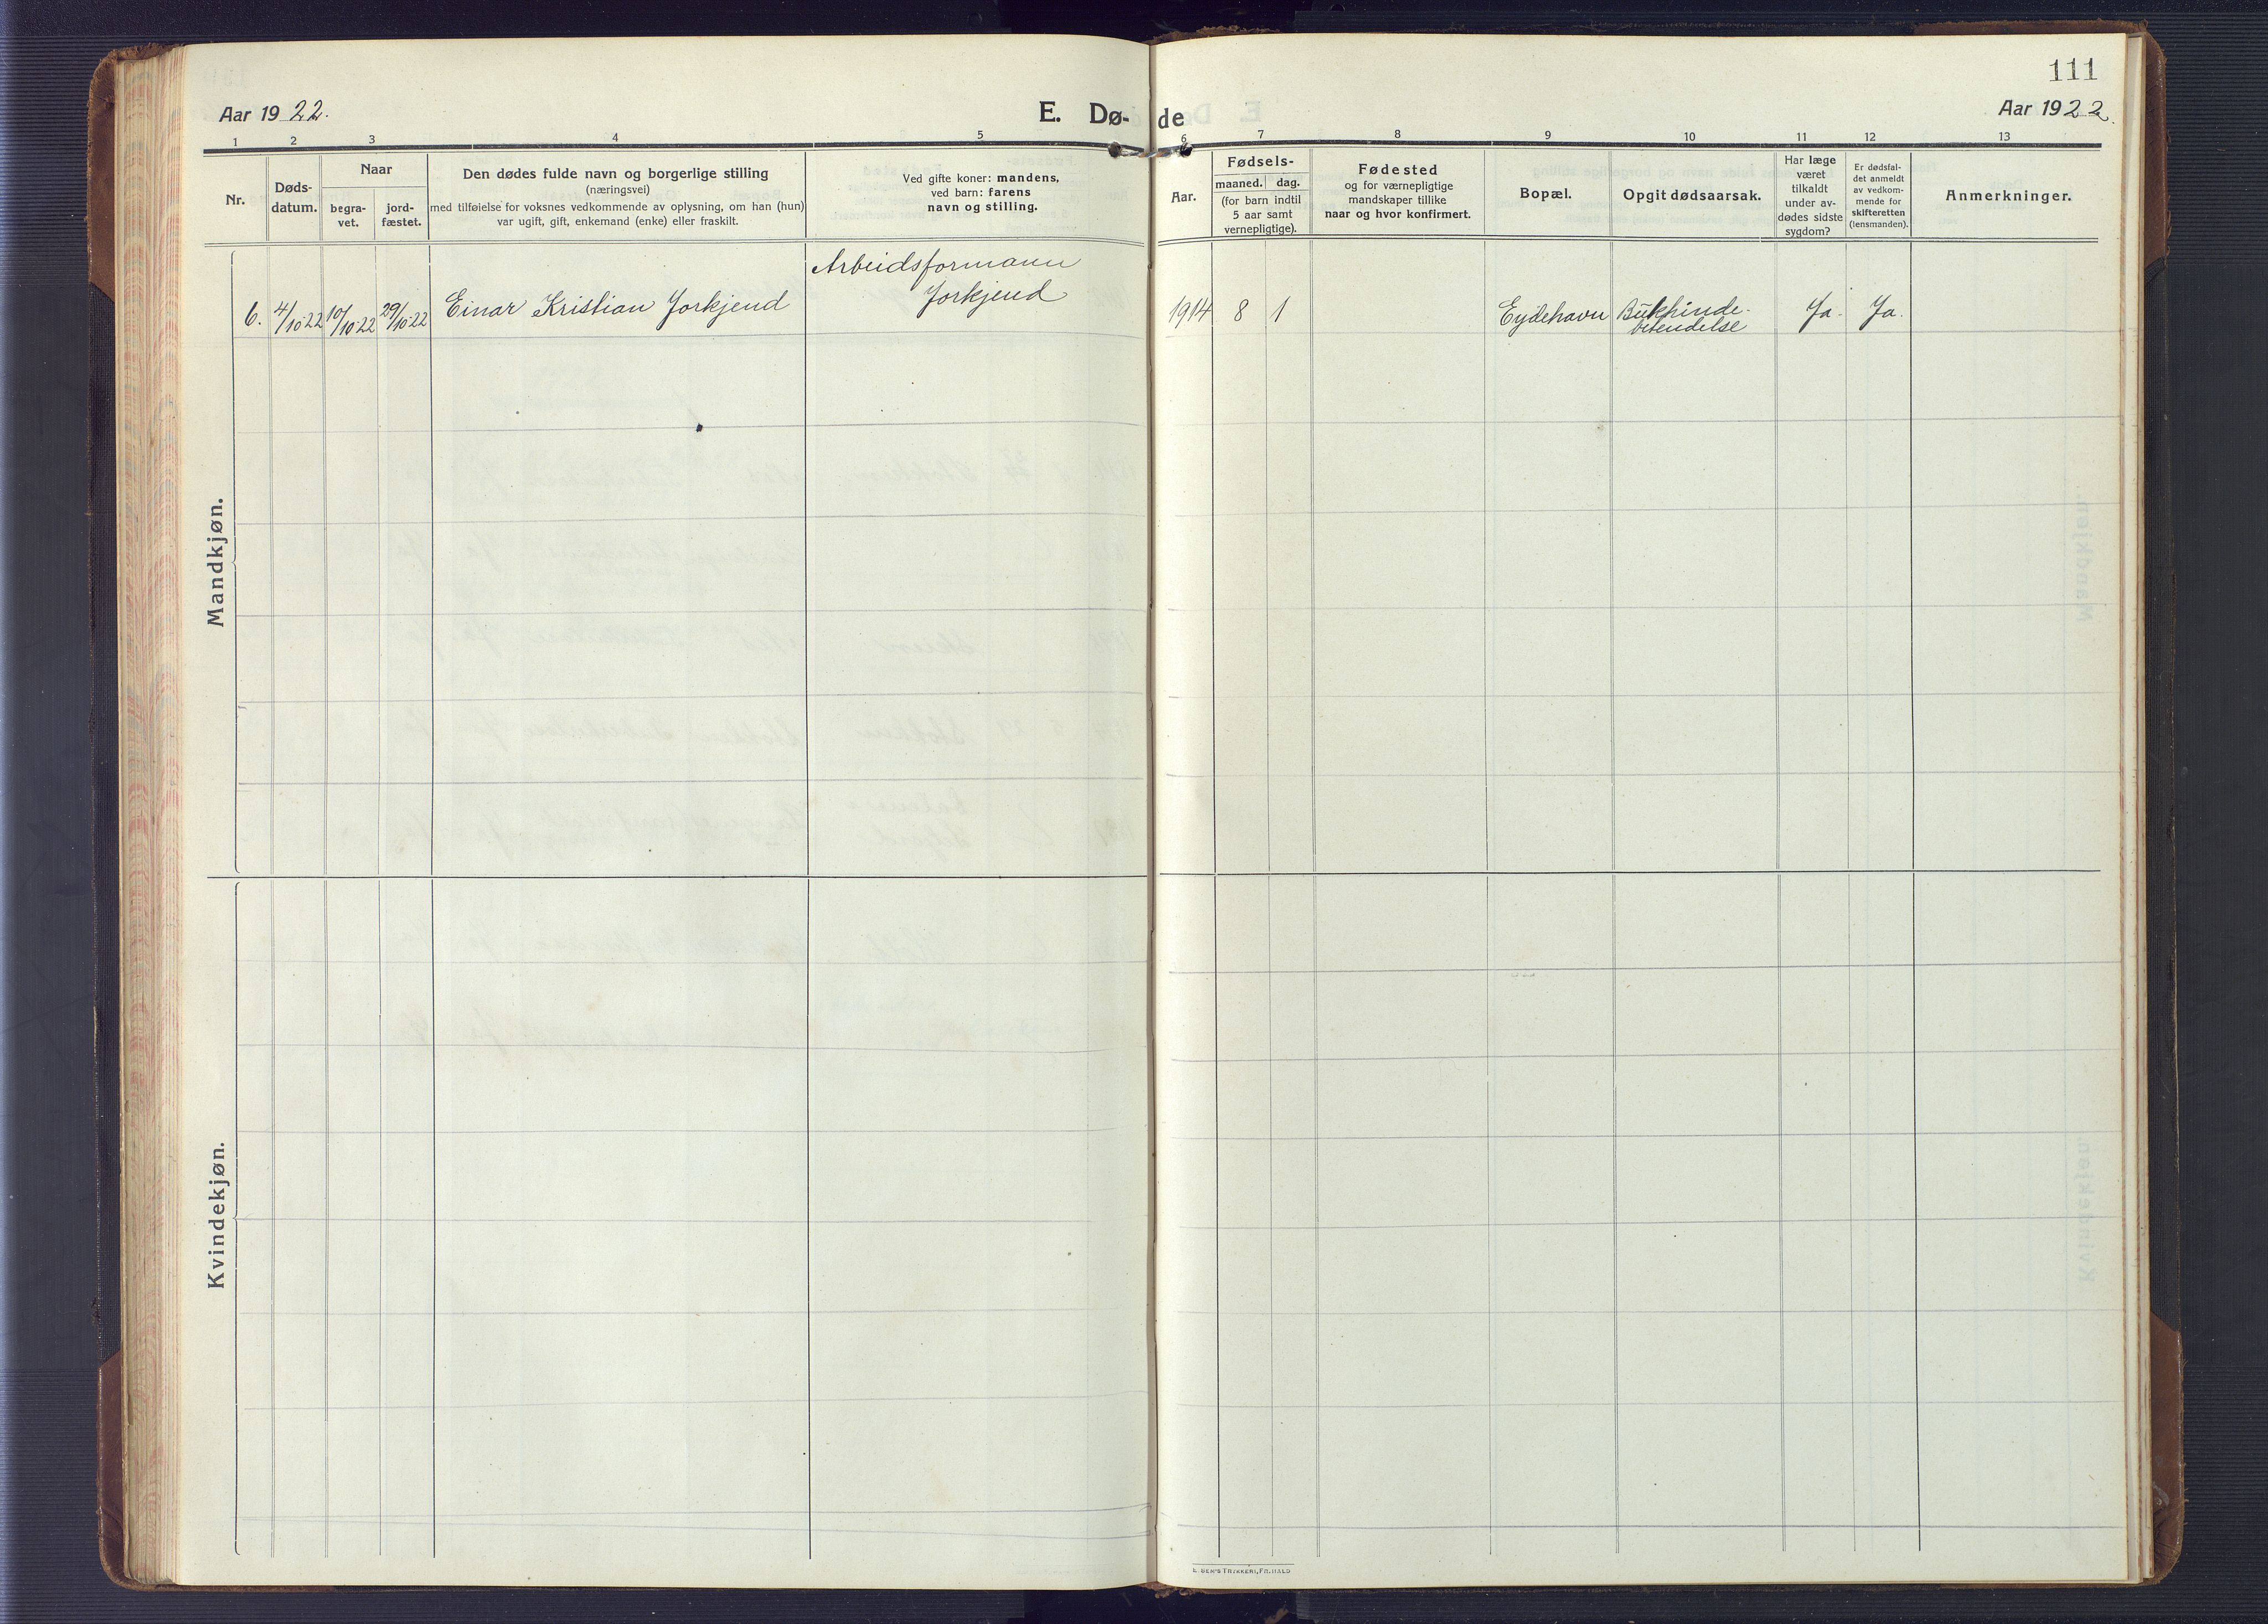 111
Aar 1922.
E. Dø-
de
Aar 1922.
1 2 3 4 5 6 7 8 9 10 11 12 13
Nr.
Døds-
datum.
Naar
begra-
vet.
jord-
fæstet.
Den dødes fulde navn og borgerlige stilling
(næringsvei)
med tilføielse for voksnes vedkommende av oplysning, om han (hun)
var ugift, gift, enkemand (enke) eller fraskilt.
Ved gifte koner: mandens,
ved barn: farens
navn og stilling.
Aar.
Fødsels-
maaned. dag.
(for barn indtil
5 aar samt
vernepligtige).
Fødested
og for værnepligtige
mandskaper tillike
naar og hvor konfirmert.
Bopæl.
Opgit dødsaarsak.
Har læge
været
tilkaldt
under av-
dødes sidste
sygdom?
Er dødsfal-
det anmeldt
av vedkom-
mende for
skifteretten
(lensmanden).
Anmerkninger.
Mandkjøn.
Arbeidsformann
6. 4/10-22 10/10-22 29/10-22 Einar Kristian Jorkjend Jorkjend 1914 8 1 Eydehavn Bukhinde- Ja. Ja.
betendelse
Kvindekjøn.